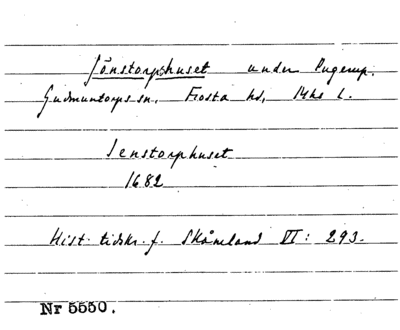 Jönstorphuset under Pugerup.
Gudmuntorps sn, Frosta hd, Mhs l.
Jenstorphuset
1682
Hist. tidskr. f. Skåneland VI: 293.
Nr 5550.